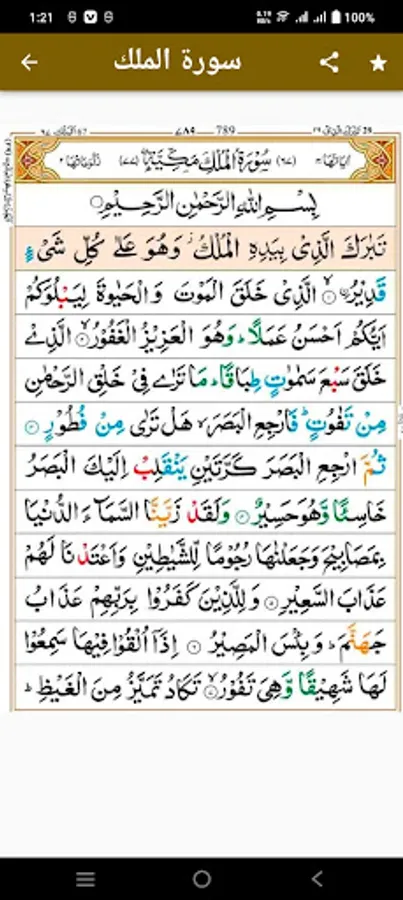 1:21 100%
سورة الملك
789 ٧٨٩
(٦٧) سُوْرَةُ الْمُلْكِ مَكِّيَّةٌ (٧٧)
بِسْمِ اللّٰهِ الرَّحْمٰنِ الرَّحِيْمِ
تَبٰرَكَ الَّذِیْ بِیَدِهِ الْمُلْكُ ؗ وَهُوَ عَلٰی كُلِّ شَیْءٍ
قَدِیْرُ ۙﹰ الَّذِیْ خَلَقَ الْمَوْتَ وَالْحَیٰوةَ لِیَبْلُوَكُمْ
اَیُّكُمْ اَحْسَنُ عَمَلًا ؕ وَهُوَ الْعَزِیْزُ الْغَفُوْرُ ۙ الَّذِیْ
خَلَقَ سَبْعَ سَمٰوٰتٍ طِبَاقًا ؕ مَا تَرٰی فِیْ خَلْقِ الرَّحْمٰنِ
مِنْ تَفٰوُتٍ ؕ فَارْجِعِ الْبَصَرَ ۙ هَلْ تَرٰی مِنْ فُطُوْرٍ
ثُمَّ ارْجِعِ الْبَصَرَ كَرَّتَیْنِ یَنْقَلِبْ اِلَیْكَ الْبَصَرُ
خَاسِئًا وَّهُوَ حَسِیْرٌ وَلَقَدْ زَیَّنَّا السَّمَآءَ الدُّنْیَا
بِمَصَابِیْحَ وَجَعَلْنٰهَا رُجُوْمًا لِّلشَّیٰطِیْنِ وَاَعْتَدْنَا لَهُمْ
عَذَابَ السَّعِیْرِ وَلِلَّذِیْنَ كَفَرُوْا بِرَبِّهِمْ عَذَابُ
جَهَنَّمَ ؕ وَبِئْسَ الْمَصِیْرُ اِذَاۤ اُلْقُوْا فِیْهَا سَمِعُوْا
لَهَا شَهِیْقًا وَّهِیَ تَفُوْرُ ۙ تَكَادُ تَمَیَّزُ مِنَ الْغَیْظِ ؕ